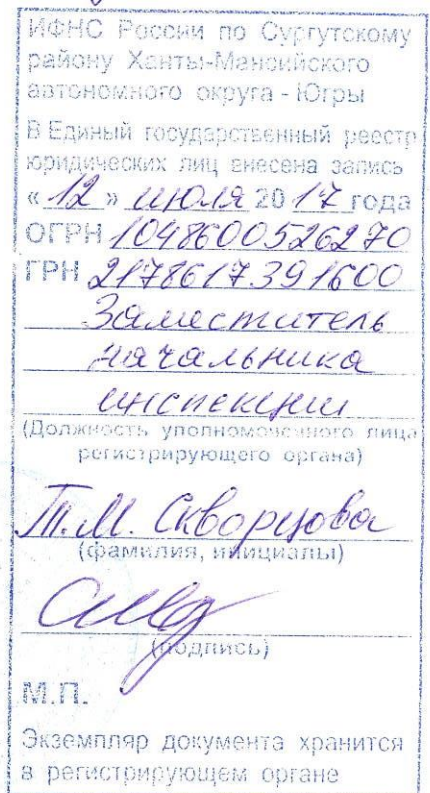 ИФНС России по Сургутскому
району Ханты-Мансийского
автономного округа - Югры
В Единый государственный реестр
юридических лиц внесена запись
« 12 » июля 20 17 года
ОГРН 1048600526270
ГРН 2178617391600
Заместитель
начальника
инспекции
(Должность уполномоченного лица
регистрирующего органа)
Т.М. Скворцова
(фамилия, инициалы)
(подпись)
М.П.
Экземпляр документа хранится
в регистрирующем органе